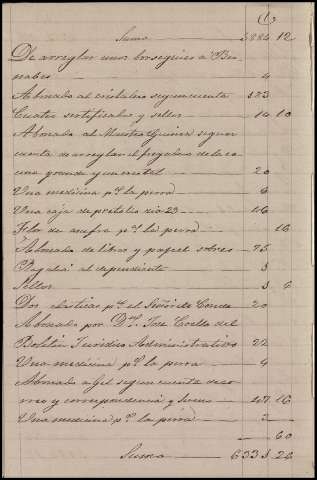 (1)
Suma 5884 12
De arreglar unos borseguies a Ber-
nabes 4
Abonado al cristalero segun cuenta 123
Cuatro sertificados y sellos 14 10
Abonado al Maestro Guinea segun
cuenta de arreglar el fregadero de la co-
cina grande y un cristal 20
Una medicina pª la perra 6
Una caja de 23 16
Flor de asufre pª la perra 16
Abonado de libros y papel sobres 75
al dependiente 3
Sellos 3 6
Dos elasticas pª el Señor de Conde 20
Abonado por Dn. Jose Coello del
Boletin Juridico Administrativo 22
Una medicina pª la perra 4
Abonado a Gil segun cuenta de co-
rreo y correspondencia y 107 16
Una medicina pª la perra 2
60
Suma 6331 26